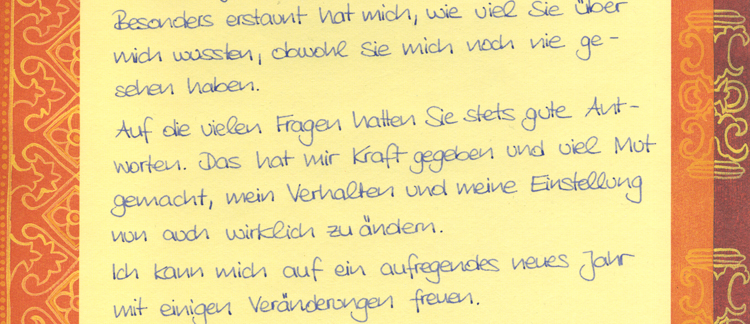 Besonders erstaunt hat mich, wie viel Sie über
mich wussten, obwohl Sie mich noch nie ge-
sehen haben.
Auf die vielen Fragen hatten Sie stets gute Ant-
worten. Das hat mir Kraft gegeben und viel Mut
gemacht, mein Verhalten und meine Einstellung
nun auch wirklich zu ändern.
Ich kann mich auf ein aufregendes neues Jahr
mit einigen Veränderungen freuen.